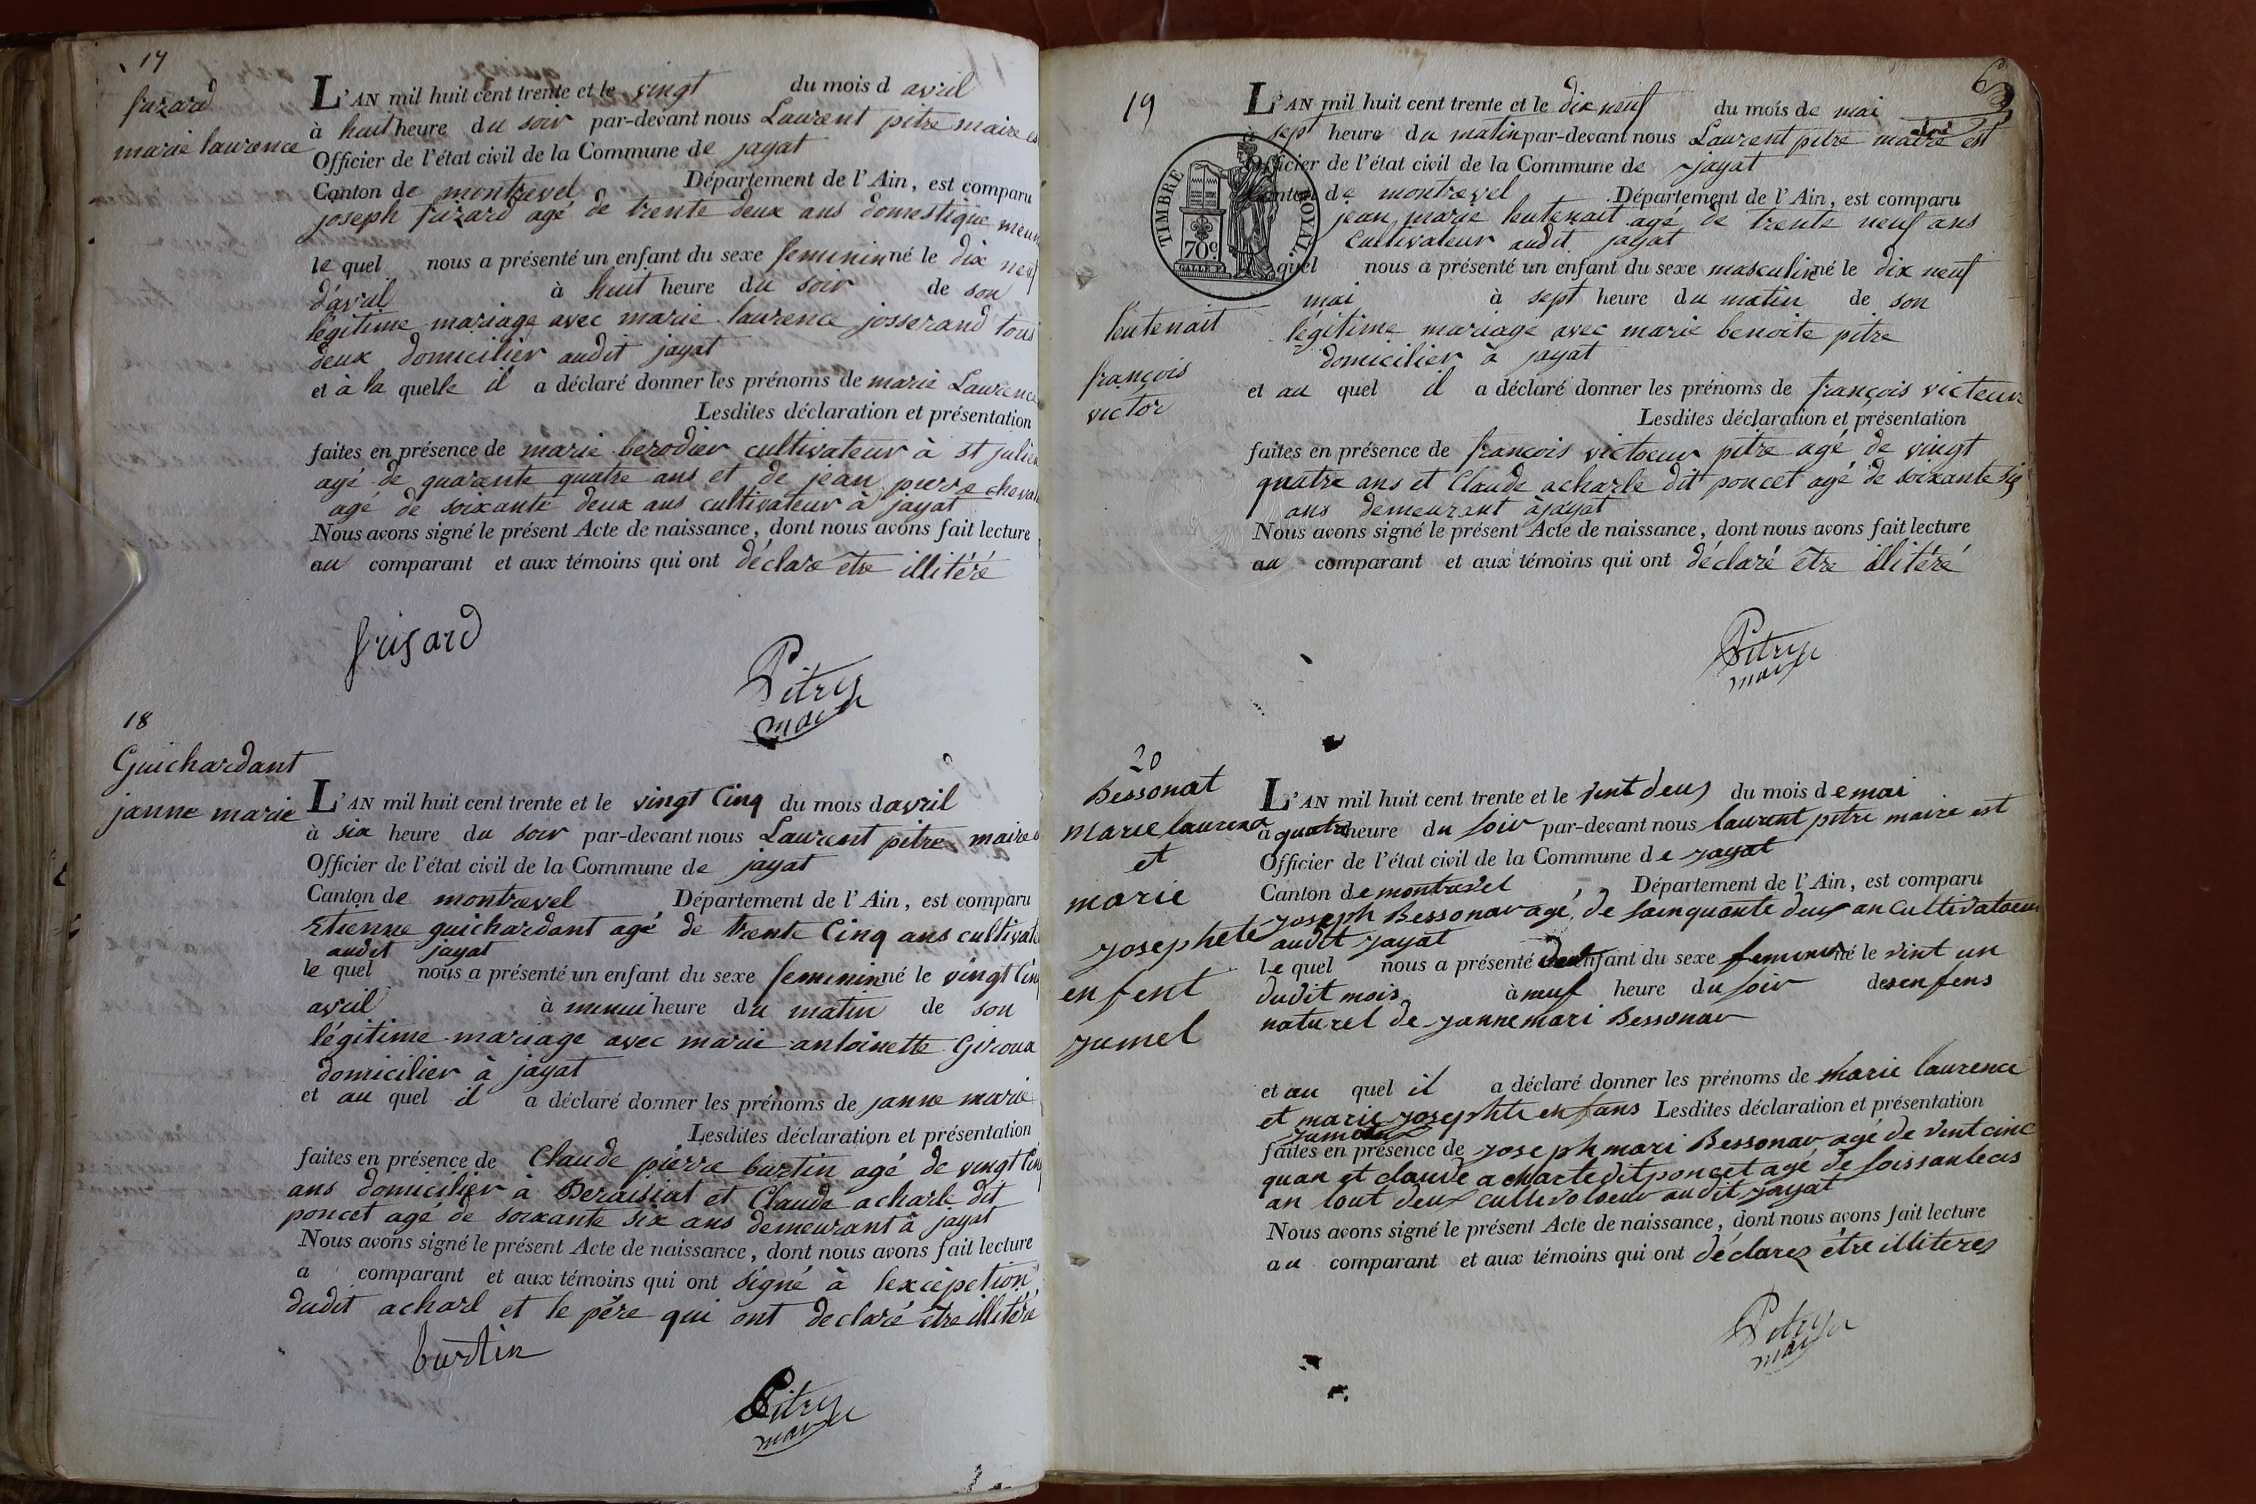 17
frizard
marie laurence
L'AN mil huit cent trente et le vingt du mois d avril
à huit heure du soir par-devant nous Laurent pitre maire
Officier de l'état civil de la Commune de jayat
Canton de montrevel Département de l'Ain, est comparu
joseph frizard agé de trente deux ans domestique
le quel nous a présenté un enfant du sexe feminin né le dix neuf
d'avril à huit heure du soir de son
légitime mariage avec marie laurence josserand tous
deux domicilier audit jayat
et à la quelle il a déclaré donner les prénoms de marie Laurence
Lesdites déclaration et présentation
faites en présence de marie berodier cultivateur à st julien
agé de quarante quatre ans et de jean pierre
agé de soixante deux ans cultivateur à jayat
Nous avons signé le présent Acte de naissance, dont nous avons fait lecture
au comparant et aux témoins qui ont déclaré être illitéré
frisard
Pitre
maire
18
Guichardant
janne marie
L'AN mil huit cent trente et le vingt Cinq du mois d avril
à six heure du soir par-devant nous Laurent pitre maire
Officier de l'état civil de la Commune de jayat
Canton de montrevel Département de l'Ain, est comparu
Etienne guichardant agé de trente Cinq ans
audit jayat
le quel nous a présenté un enfant du sexe feminin né le vingt Cinq
avril à minui heure du matin de son
légitime mariage avec marie antoinette Giroux
domicilier à jayat
et au quel il a déclaré donner les prénoms de janne marie
Lesdites déclaration et présentation
faites en présence de Claude pierre burtin agé de vingt
ans domicilier à Beraisiat et Claude acharle dit
poncet agé de soixante six ans demeurant à jayat
Nous avons signé le présent Acte de naissance, dont nous avons fait lecture
a comparant et aux témoins qui ont signé à lexcèpetion
dudit acharl et le père qui ont declaré être illitéré
burtin
Pitre
maire
63
19
leutenait
françois
victor
L'AN mil huit cent trente et le dix neuf du mois de mai
à sept heure du matin par-devant nous Laurent pitre maire est
Officier de l'état civil de la Commune de jayat
Canton de montrevel Département de l'Ain, est comparu
jean marie leutenait agé de trente neuf ans
Cultivateur audit jayat
quel nous a présenté un enfant du sexe masculin né le dix neuf
mai à sept heure du matin de son
légitime mariage avec marie benoite pitre
domicilier à jayat
et au quel il a déclaré donner les prénoms de françois victeur
Lesdites déclaration et présentation
faites en présence de françois victoeur pitre agé de vingt
quatre ans et Claude acharle dit poncet agé de soixante six
ans demeurant à jayat
Nous avons signé le présent Acte de naissance, dont nous avons fait lecture
au comparant et aux témoins qui ont déclaré être illitéré
TIMBRE ROYAL
70c
Pitre
maire
20
Bessonat
marie laurenc
et
marie
josephete
enfent
jumel
L'AN mil huit cent trente et le vint deus du mois de mai
à quatre heure du soir par-devant nous laurent pitre maire est
Officier de l'état civil de la Commune de jayat
Canton de montrevel Département de l'Ain, est comparu
joseph Bessonav agé de sainquante deux an Cultivatoeur
audit jayat
le quel nous a présenté deux enfant du sexe feminin né le vint un
dudit mois à neuf heure du soir des enfens
naturel de jannemari Bessonav
et au quel il a déclaré donner les prénoms de marie laurence
et marie josephte enfans Lesdites déclaration et présentation
faites en présence de joseph mari Bessonav agé de vint cinc
quan et claude acharle dit poncet agé de soissantecis
an tout deux cultivatoeur audit jayat
Nous avons signé le présent Acte de naissance, dont nous avons fait lecture
au comparant et aux témoins qui ont déclarez être illiteres
Pitre
maire